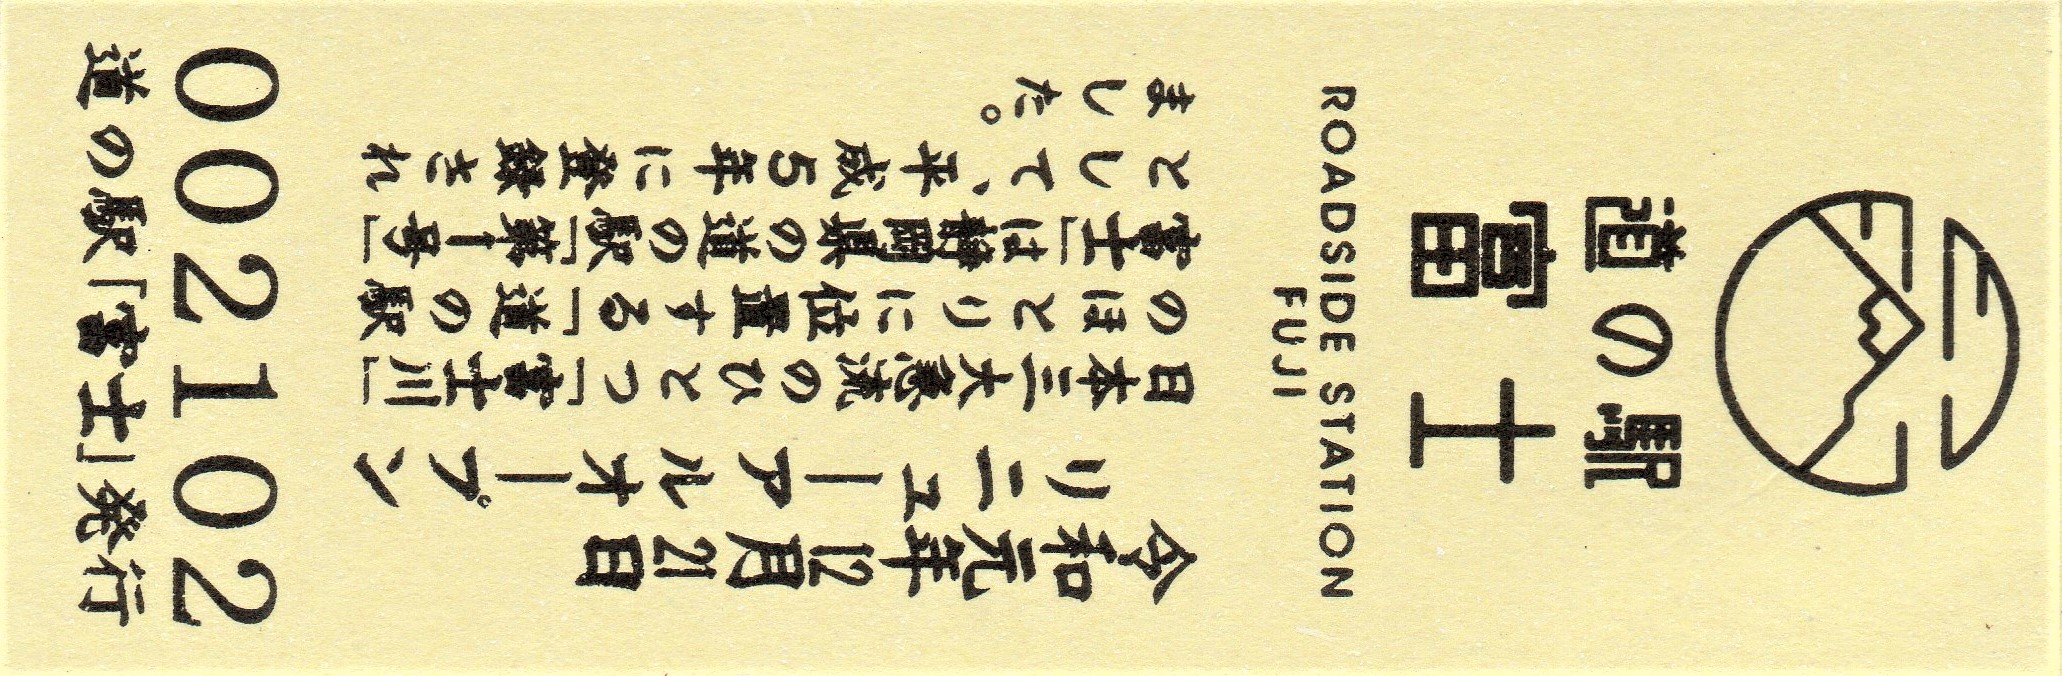 道の駅
富士
ROADSIDE STATION
FUJI
令和元年12月21日
リニューアルオープン
日本三大急流のひとつ「富士川」
のほとりに位置する「道の駅
富士」は静岡県の道の駅「第1号」
として、平成5年に登録され
ました。
002102
道の駅「富士」発行